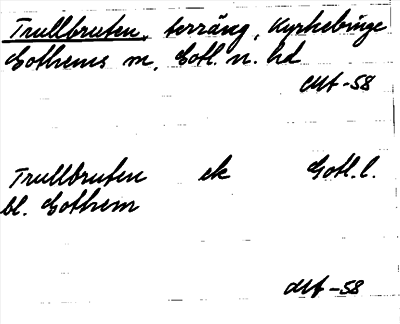 Trullbruten, terräng, Kyrkebinge
Gothems sn, Gotl. n. hd
-58
Trullbruten ek Gotl. l.
bl. Gothem
-58